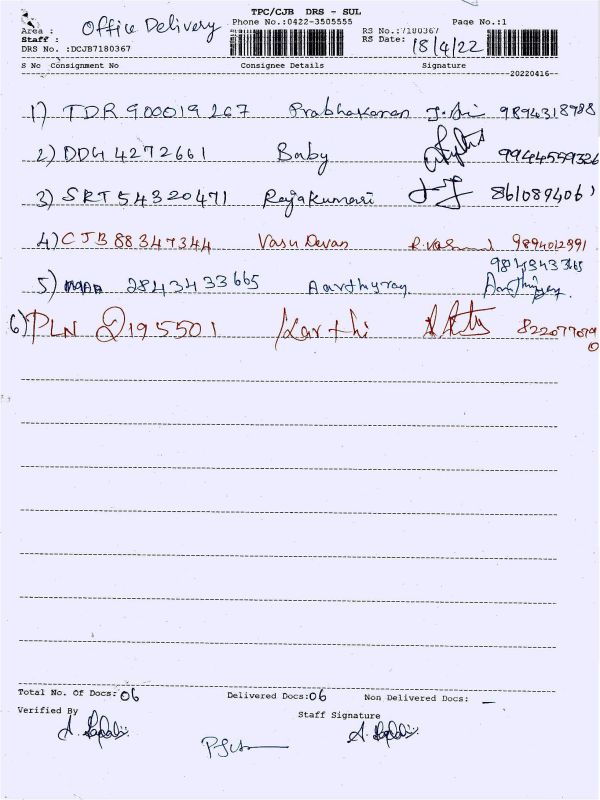 TPC/CJB DRS - SUL
Area : Office Delivery Phone No.:0422-3505555 RS No.:7180367 Page No.:1
Staff :
DRS No. :DCJB7180367 RS Date: 18/4/22
S No Consignment No Consignee Details Signature
20220416
1) TDR 900019267 Prabhakaran 9894318988
2) DDG 4272661 Baby 9944559326
3) SRT 54320471 Rajakumari 8610894061
4) CJB 88347344 Vasu Devan 9894012991
9843433665
5) 2843433665 Aarthyraj
6) PLN 2195501 Karthi
Total No. Of Docs: 06 Delivered Docs: 06 Non Delivered Docs: —
Verified By Staff Signature